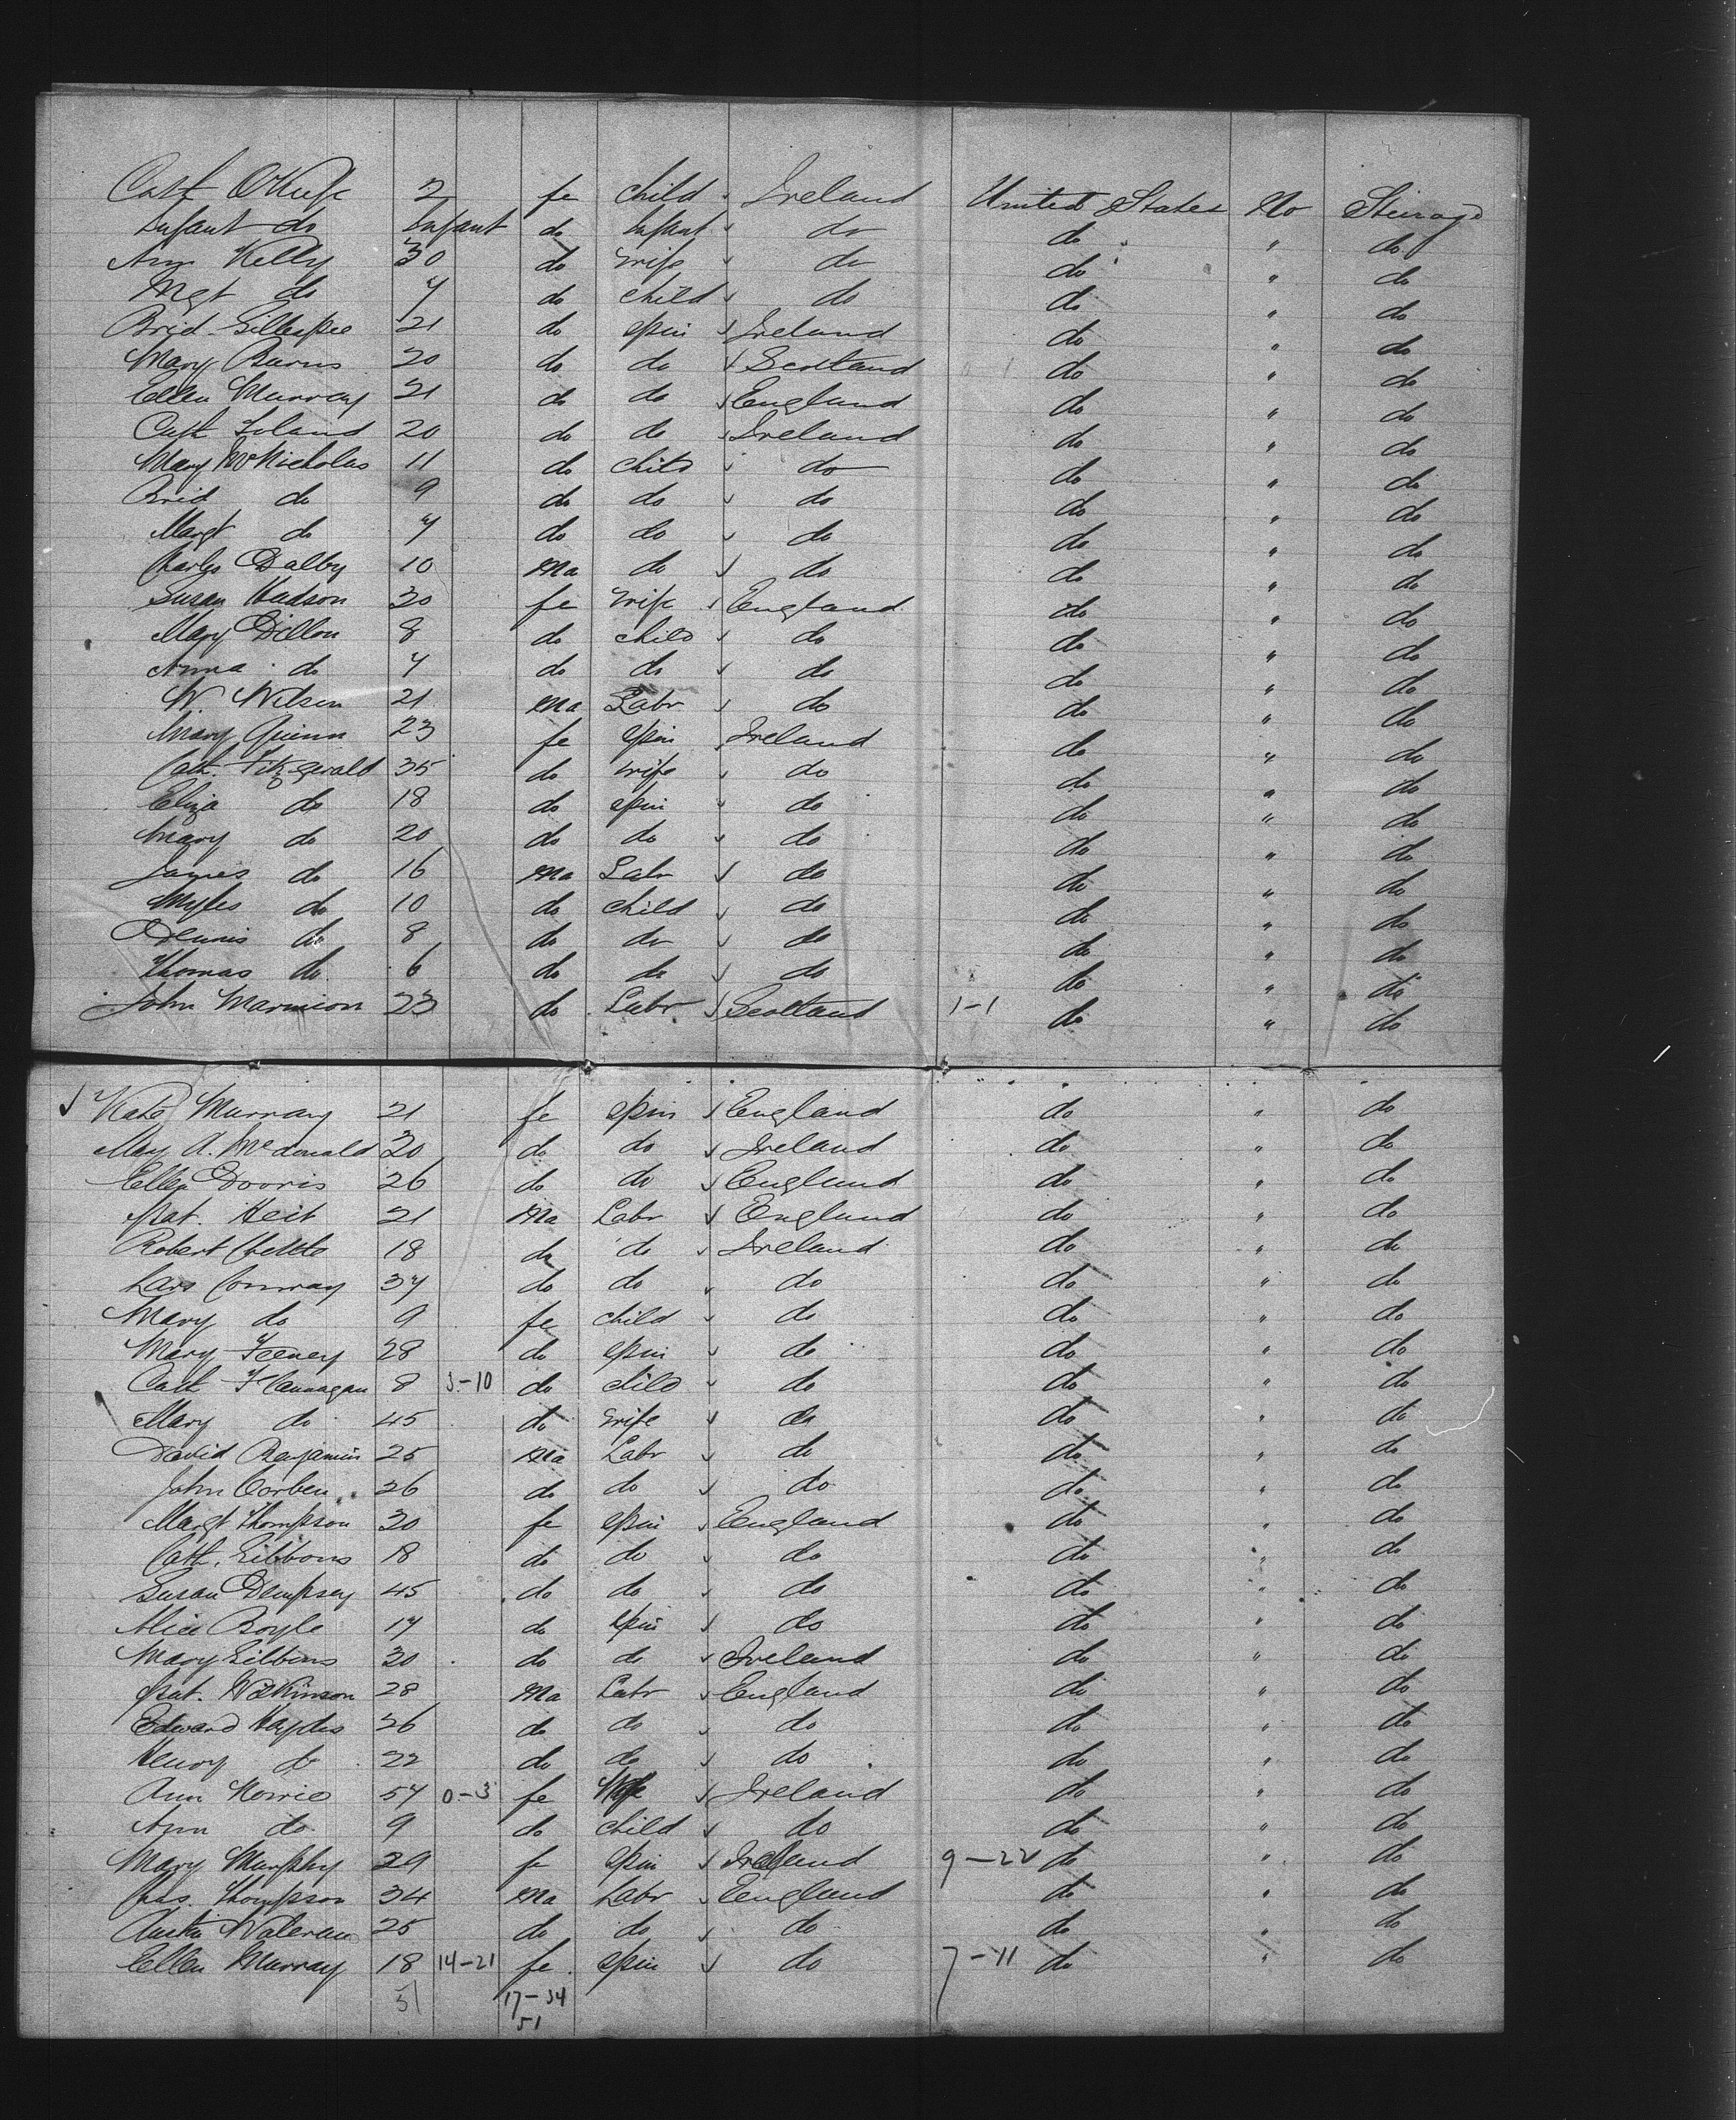 Cath O'Keefe 2 fe child Ireland United States No Steirage
Infant do Infant do Infant do do " do
Ann Kelly 30 do wife do do " do
Mgt do 7 do child do do " do
Brid Gillespie 21 do spin Ireland do " do
Mary Burns 20 do do Scotland do " do
Ellen Murray 21 do do England do " do
Cath Toland 20 do do Ireland do " do
Mary McNicholas 11 do child do do " do
Brid do 9 do do do do " do
Margt do 7 do do do do " do
Charles Dalby 10 ma do do do " do
Susan Hudson 30 fe wife England do " do
Mary Dillon 8 do child do do " do
Anna do 7 do do do do " do
W. Wilson 21 ma Labr do do " do
Mary Quinn 23 fe spin Ireland do " do
Cath. Fitzgerald 35 do wife do do " do
Eliza do 18 do spin do do " do
Mary do 20 do do do do " do
James do 16 ma Labr do do " do
Myles do 10 do child do do " do
Dennis do 8 do do do do " do
Thomas do 6 do do do do " do
John Marmion 23 do Labr Scotland 1-1 do " do
Kate Murray 21 fe spin England do " do
Mary A. McDonald 30 do do Ireland do " do
Ellen Dorris 26 do do England do " do
Pat. 21 ma Labr England do " do
Robert 18 do do Ireland do " do
Conway 37 do do do do " do
Mary do 9 fe child do do " do
Mary Feeney 28 do spin do do " do
Cath Flannagan 8 3-10 do child do do " do
Mary do 45 do wife do do " do
David Benjamin 25 ma Labr do do " do
John Corben 26 do do do do " do
Margt Thompson 30 fe spin England do " do
Cath. Gibbons 18 do do do do " do
Susan Dempsey 45 do do do do " do
Alice Boyle 17 do spin do do " do
Mary Gibbons 30 do do Ireland do " do
Pat. Wilkinson 28 ma Labr England do " do
Edward 26 do do do do " do
Henry do 22 do do do do " do
Ann 57 0-3 fe Wife Ireland do " do
Ann do 9 do child do do " do
Mary Murphy 29 fe spin Ireland 9-22 do " do
Thompson 34 ma Labr England do " do
25 do do do do " do
Ellen Murray 18 14-21 fe spin do 7-11 do " do
51 17-34
51